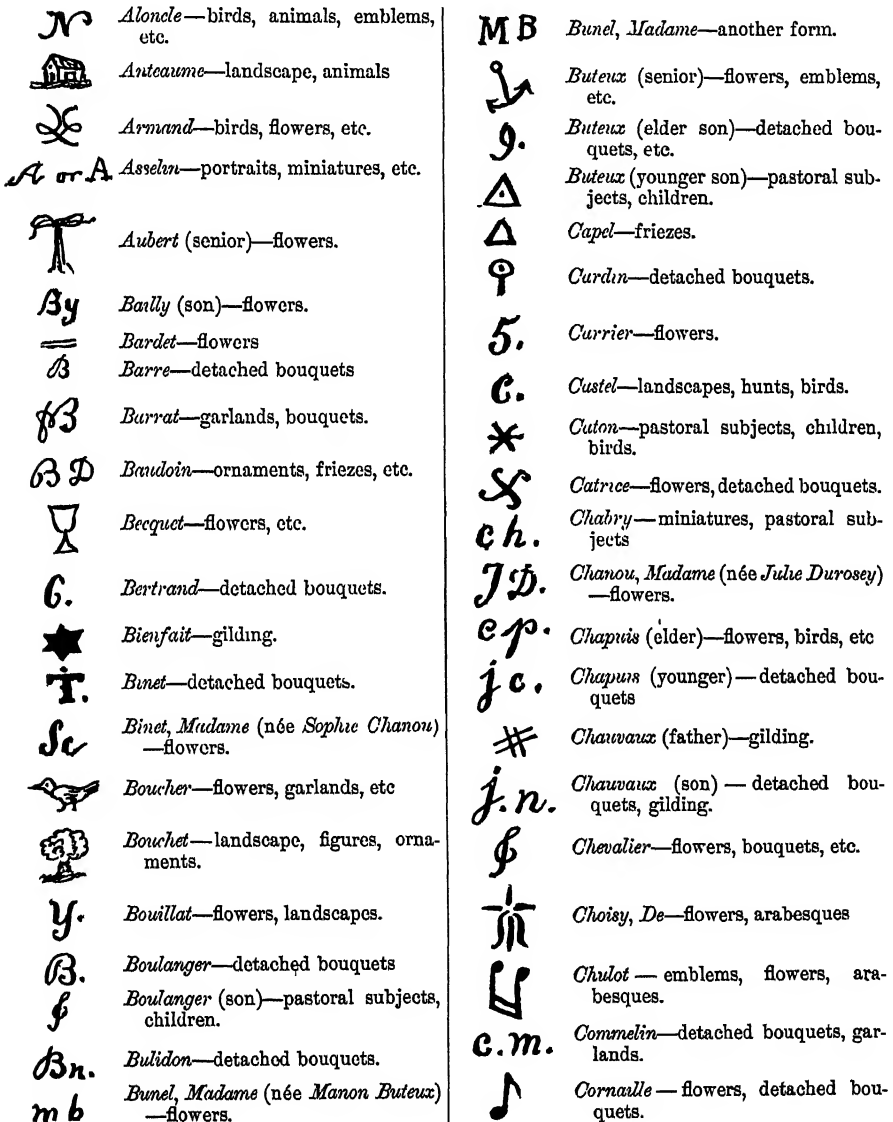 N Aloncle—birds, animals, emblems,
etc.
Anteaume—landscape, animals
Armand—birds, flowers, etc.
A or A Asselin—portraits, miniatures, etc.
Aubert (senior)—flowers.
By Bailly (son)—flowers.
Bardet—flowers
B Barre—detached bouquets
B Barrat—garlands, bouquets.
B D Baudoin—ornaments, friezes, etc.
Becquet—flowers, etc.
6. Bertrand—detached bouquets.
Bienfait—gilding.
T. Binet—detached bouquets.
Sc Binet, Madame (née Sophie Chanou)
—flowers.
Boucher—flowers, garlands, etc
Bouchet—landscape, figures, orna-
ments.
Y. Bouillat—flowers, landscapes.
B. Boulanger—detached bouquets
Boulanger (son)—pastoral subjects,
children.
Bn. Bulidon—detached bouquets.
m b Bunel, Madame (née Manon Buteux)
—flowers.
M B Bunel, Madame—another form.
Buteux (senior)—flowers, emblems,
etc.
9. Buteux (elder son)—detached bou-
quets, etc.
Buteux (younger son)—pastoral sub-
jects, children.
Capel—friezes.
Cardin—detached bouquets.
5. Carrier—flowers.
C. Castel—landscapes, hunts, birds.
Caton—pastoral subjects, children,
birds.
Catrice—flowers, detached bouquets.
ch. Chabry—miniatures, pastoral sub-
jects
J D. Chanou, Madame (née Julie Durosey)
—flowers.
c p. Chapuis (elder)—flowers, birds, etc
j c. Chapuis (younger)—detached bou-
quets
Chauvaux (father)—gilding.
j. n. Chauvaux (son) — detached bou-
quets, gilding.
Chevalier—flowers, bouquets, etc.
Choisy, De—flowers, arabesques
Chulot — emblems, flowers, ara-
besques.
c. m. Commelin—detached bouquets, gar-
lands.
Cornaille — flowers, detached bou-
quets.